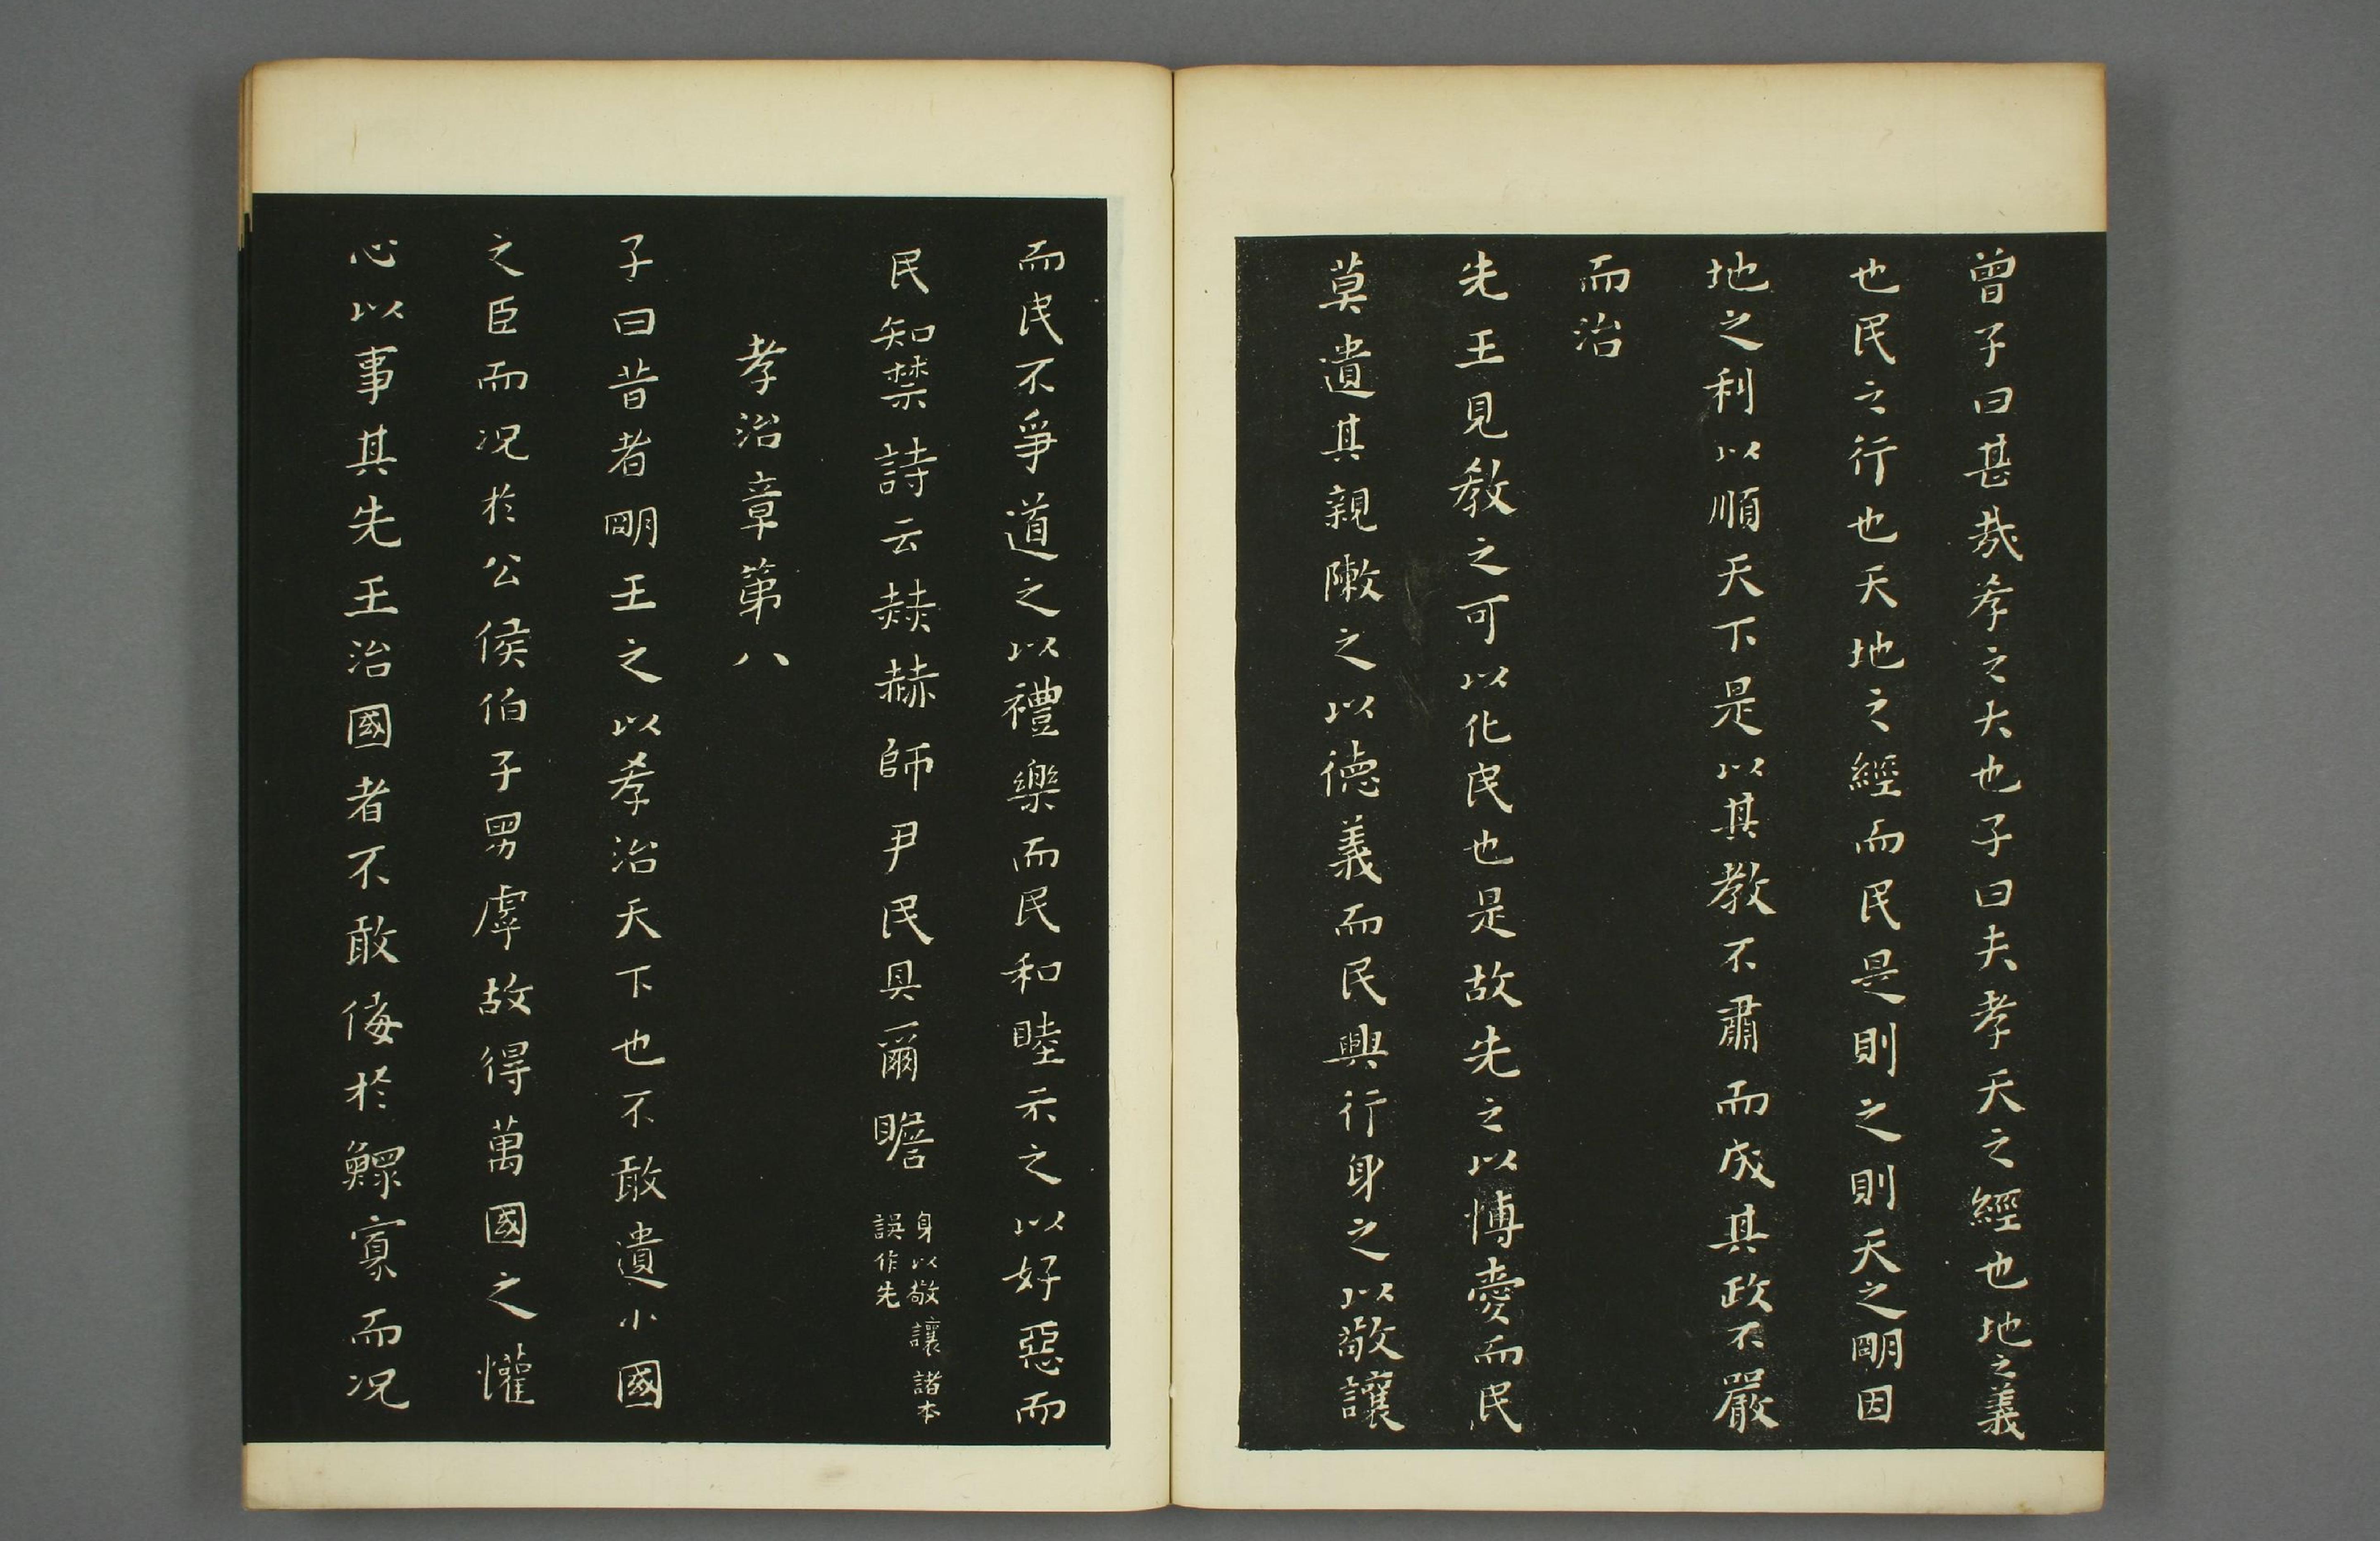 曾子曰甚哉孝之大也子曰夫孝天之經也地之義
也民之行也天地之經而民是則之則天之朙因
地之利以順天下是以其教不肅而成其政不嚴
而治
先王見教之可以化民也是故先之以愽愛而民
莫遺其親敶之以德義而民興行身之以敬讓
而民不爭道之以禮樂而民和睦示之以好惡而
民知禁詩云赫赫師尹民具爾瞻
身以敬讓諸本
誤作先
孝治章第八
子曰昔者朙王之以孝治天下也不敢遺小國
之臣而况於公侯伯子男虖故得萬國之懽
心以事其先王治國者不敢侮於鰥寡而况